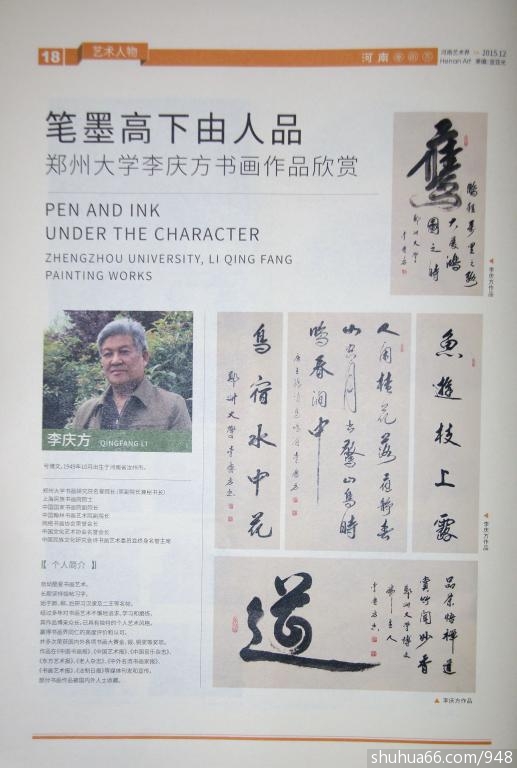 18
艺术人物
河南
河南艺术界
2015.12
Henan Art
笔墨高下由人品
郑州大学李庆方书画作品欣赏
PEN AND INK
UNDER THE CHARACTER
ZHENGZHOU UNIVERSITY, LI QING FANG
PAINTING WORKS
大展鴻
圖之時
鄭州大學
李庆方作品
李庆方 QINGFANG LI
号博文,1949年10月出生于河南省汝州市。
郑州大学书画研究院名誉院长(原副院长兼秘书长)
上海民族书画院院士
中国国家书画院副院长
中国翰林书画艺术院副院长
网络书画协会荣誉会长
中国文化艺术协会名誉会长
中国民族文化研究会诗书画艺术委员会终身名誉主席
【 个人简介 】
自幼酷爱书画艺术,
长期坚持临帖习字,
经过多年对书画艺术不懈地追求、学习和磨练,
其作品博采众长,已具有独特的个人艺术风格,
赢得书画界同仁的高度评价和认可。
并多次荣获国内外各项书画大赛金、银、铜奖等奖项。
作品在《中国画报》、《中国艺术报》、《中国音乐杂志》、
《东方艺术报》、《老人杂志》、《中外名流书画家报》、
《书画艺术报》、《法制日报》等媒体刊发和宣传。
部分书画作品被国内外人士收藏。
人閑桂花落夜靜春
山空月出驚山鳥時
鳴春澗中
魚遊枝上露
鳥宿水中花
鄭州大學
李庆方作品
品茶悟禪道
賞竹聞妙香
鄭州大學博文
道
李庆方作品
shuhua66.com/948